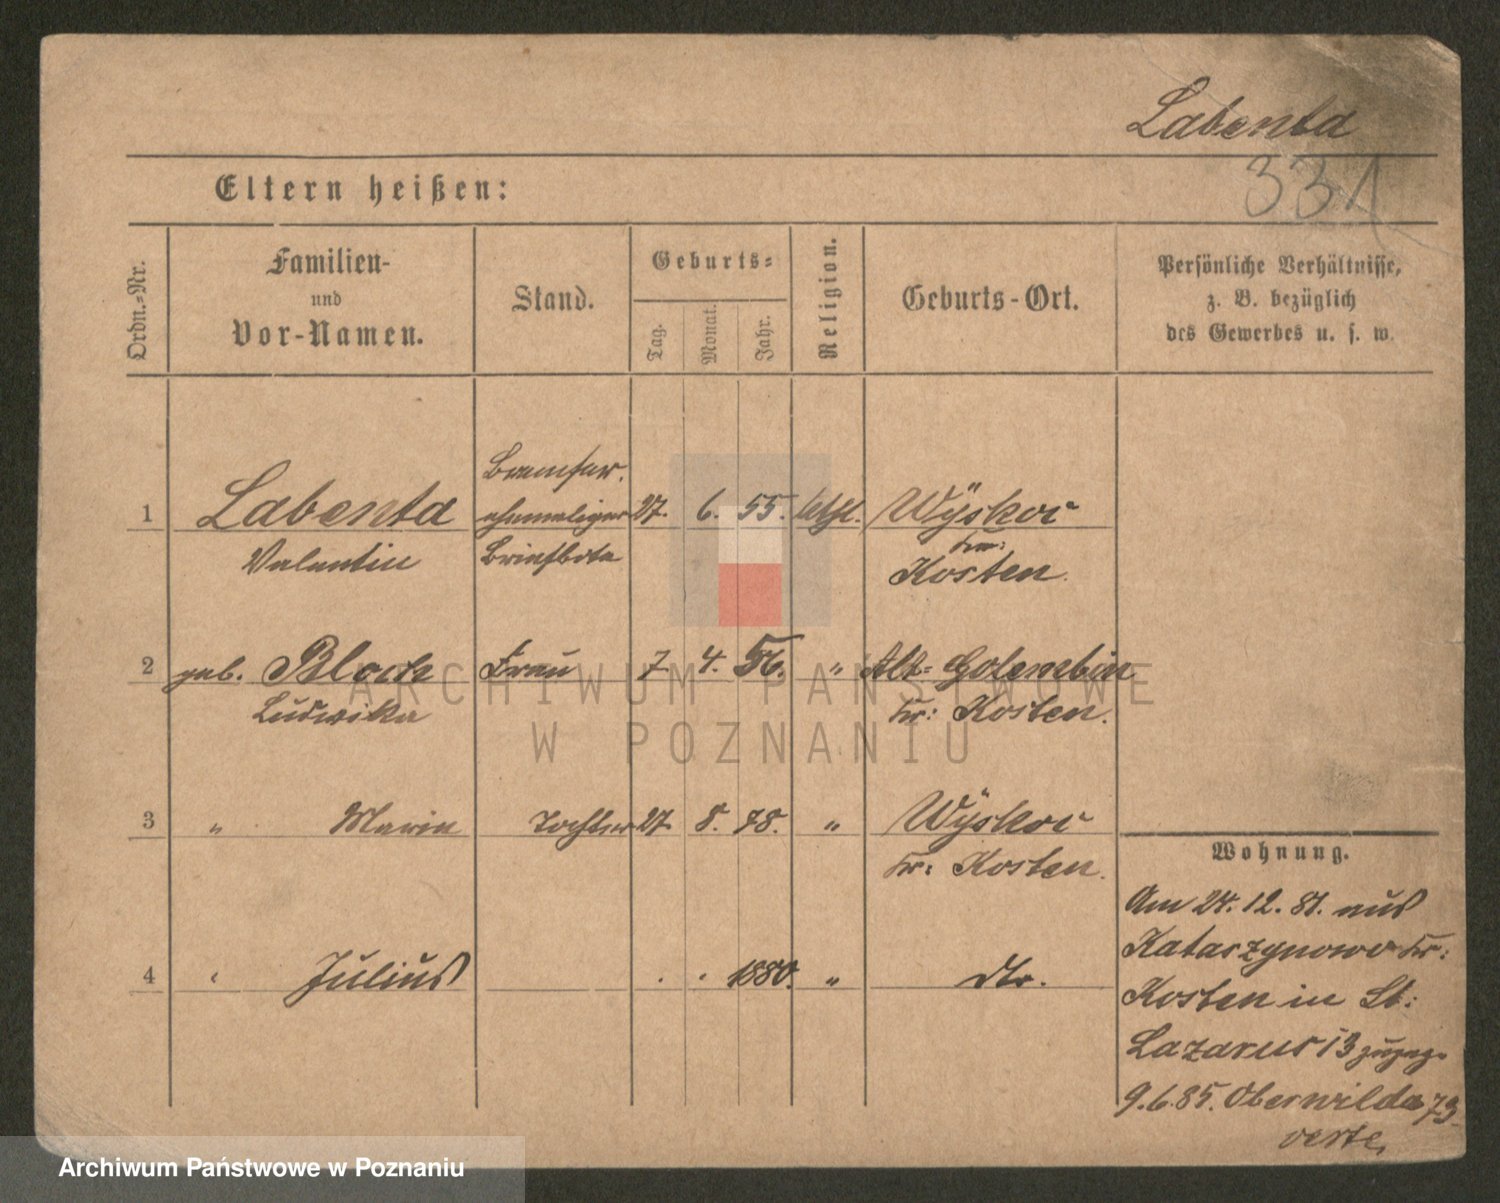 Labenta
331
Eltern heißen:
Ordn.-Nr.
Familien-
und
Vor-Namen.
Stand.
Geburts-
Tag.
Monat.
Jahr.
Religion.
Geburts-Ort.
Persönliche Verhältnisse,
z. B. bezüglich
des Gewerbes u. s. w.
Bremser,
1 Labenta ehemaliger 27. 6. 55. kathl. Wÿskoc
Valentin Briefbote Kr: Kosten.
2 geb. Block Frau 7. 4. 56. " Alt-Golembin
Ludwika Kr: Kosten.
3 " Marie Tochter 27. 8. 78. " Wÿskoc
Kr: Kosten.
4 " Julius 1880. " dto.
Wohnung.
Am 24. 12. 81. aus
Kataszynowo Kr:
Kosten in St:
Lazarus 13 zugez.
9.6.85. Oberwilda 73
verte.
ARCHIWUM PAŃSTWOWE
W POZNANIU
Archiwum Państwowe w Poznaniu